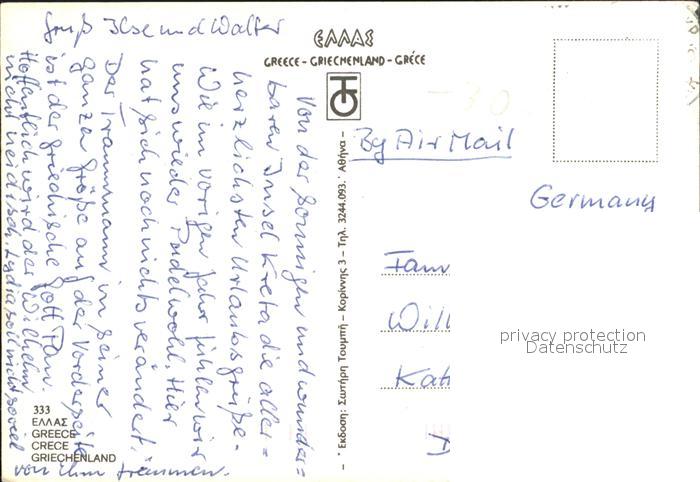 Von der sonnigen und wunder=
baren Insel Kreta die aller=
herzlichsten Urlaubsgrüße.
Wie im vorigen Jahr fühlen wir
uns wieder Pudelwohl. Hier
hat sich noch nichts verändert.
Der Traummann in seiner
ganzen Größe auf der Vorderseite
ist der griechische Gott Pan.
Hoffentlich wird der Wilhelm
nicht neidisch. Lydia soll nicht soviel
von ihm träumen.
Gruß Ilse und Walter
ΕΛΛΑΣ
GREECE - GRIECHENLAND - GRÉCE
Έκδοση: Σωτήρη Τουμπή - Κορίννης 3 - Τηλ. 3244.093. Αθήνα
By Air Mail
Germany
Fam
Will
Kat
privacy protection
Datenschutz
333
ΕΛΛΑΣ
GREECE
CRECE
GRIECHENLAND